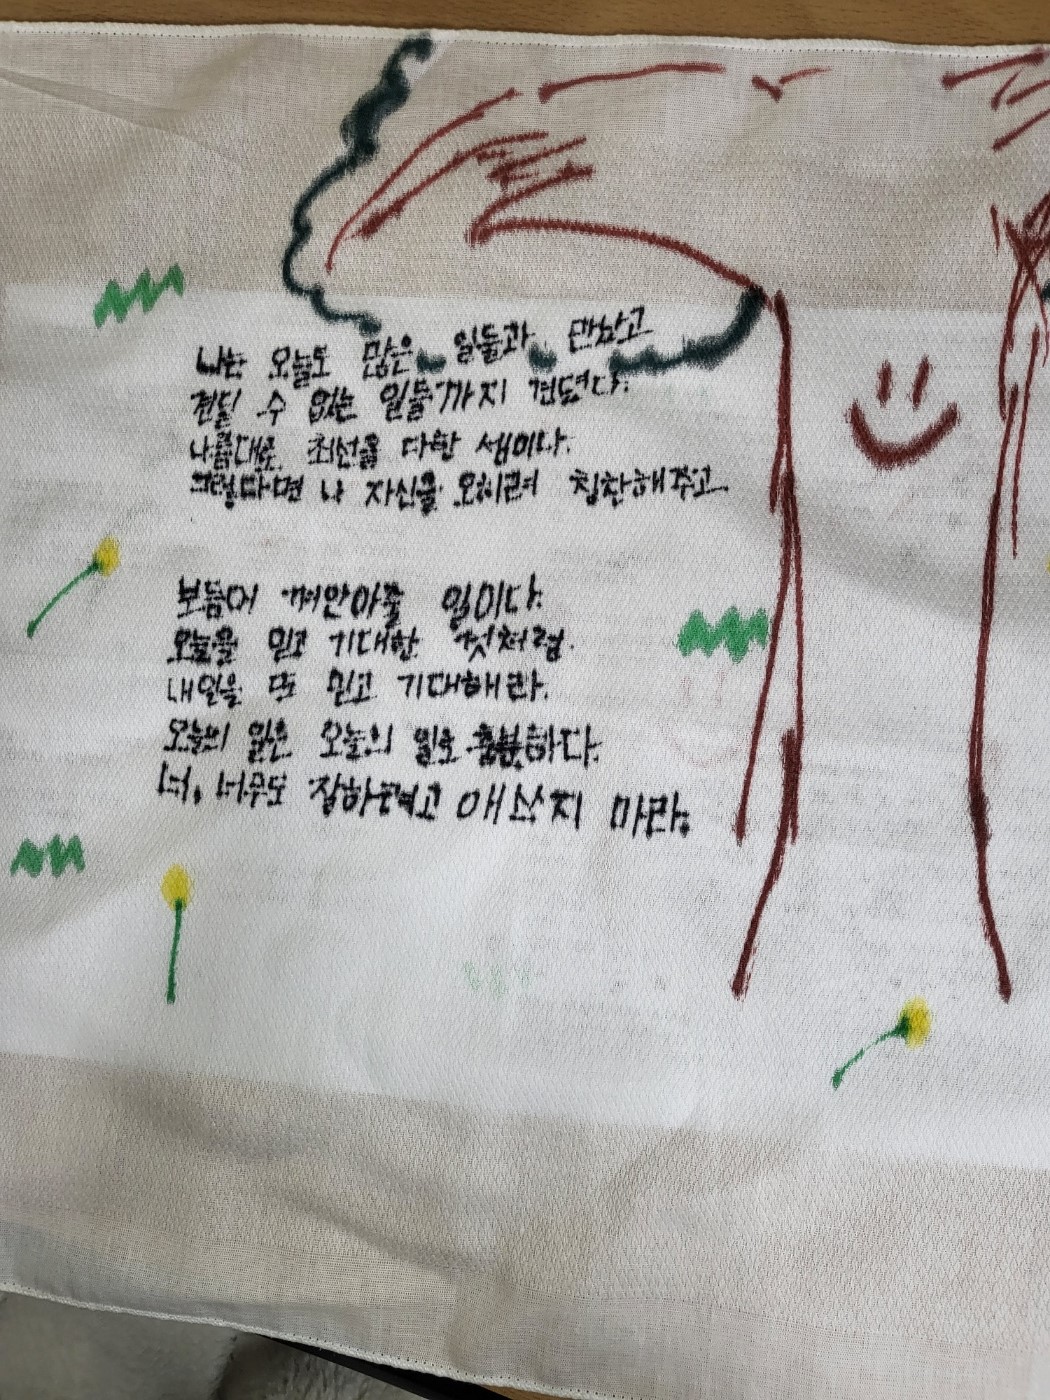 나는 오늘도 많은 일들과 만났고
견딜 수 없는 일들까지 견뎠다.
나름대로 최선을 다한 셈이다.
그렇다면 나 자신을 오히려 칭찬해주고
보듬어 껴안아줄 일이다.
오늘을 믿고 기대한 것처럼
내일을 또 믿고 기대해라.
오늘의 일은 오늘의 일로 충분하다.
너, 너무도 잘하려고 애쓰지 마라.